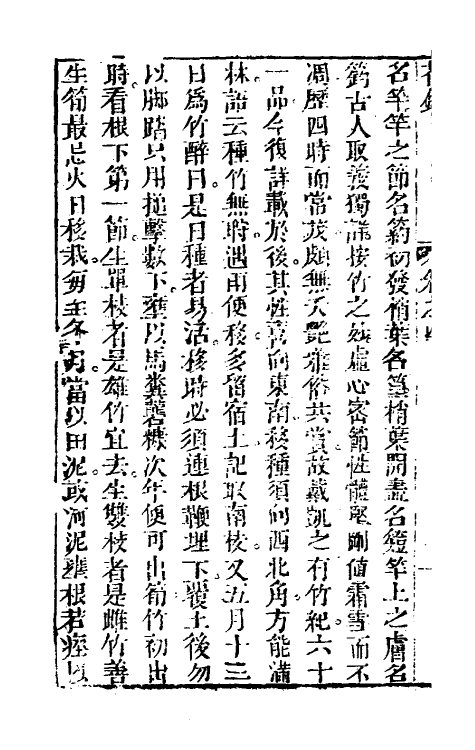 名竿竿之節名箹初發梢葉名篁梢葉開盡名𥴡竿上之膚名
筠古人取義獨詳按竹之妙虛心密節性體堅剛値霜雪而不
凋歷四時而常茂頗無夭艷雅俗共賞故戴凱之有竹紀六十
一品今復詳載於後其性喜向東南移種須向西北角方能滿
林語云種竹無時遇雨便移多留宿土記取南枝又五月十三
日爲竹醉日是日種者易活移時必須連根鞭埋下覆土後勿
以脚踏只用搥擊數下壅以馬糞礱糠次年便可出筍竹初出
時看根下第一節生單枝者是雄竹宜去生雙枝者是雌竹善
生筍最忌火日移栽每至冬月當以田泥或河泥壅根若瘞以